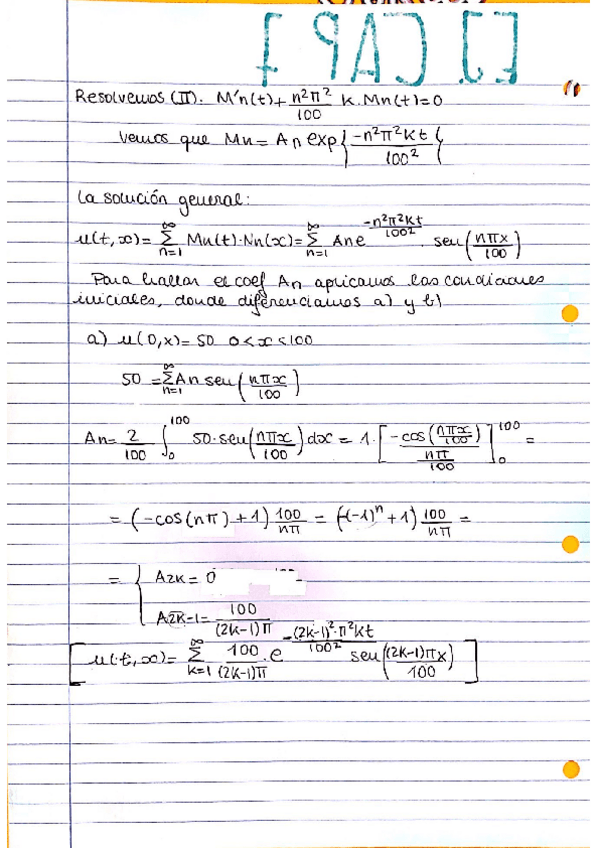 EJ. CAP 7
Resolvemos (II). M'n(t) + n²π²/100 K · Mn(t) = 0
Vemos que Mn = An exp{ -n²π²Kt / 100² }
La solución general:
u(t,x) = ∑_{n=1}^{∞} Mn(t)·Nn(x) = ∑_{n=1}^{∞} An e^{-n²π²Kt/100²} · sen(nπx/100)
Para hallar el coef An aplicamos las condiciones
iniciales, donde diferenciamos a) y b)
a) u(0,x) = 50 0<x<100
50 = ∑_{n=1}^{∞} An sen(nπx/100)
An = 2/100 ∫_0^{100} 50·sen(nπx/100) dx = 1·[ -cos(nπx/100) / (nπ/100) ]_0^{100} =
= (-cos(nπ) + 1) 100/nπ = (-(-1)^n + 1) 100/nπ =
= { A2K = 0
A2K-1 = 100/(2K-1)π
[ u(t,x) = ∑_{K=1}^{∞} 100/(2K-1)π · e^{-(2K-1)²·π²Kt/100²} sen((2K-1)πx/100) ]